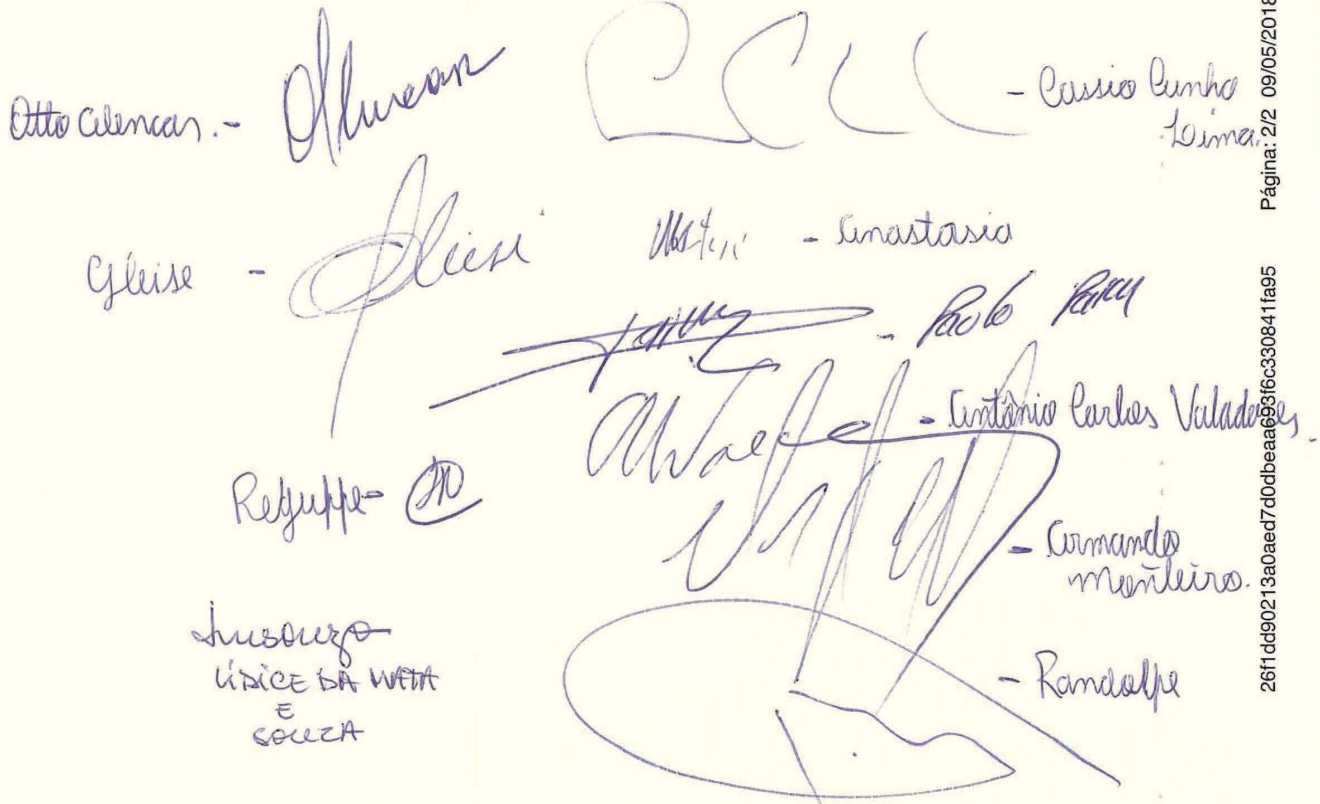 Otto Alencar. -
- Cassio Cunha
Lima.
Gleise -
- Anastasia
- Paolo Paim
- Antônio Carlos Valadares.
Reguffe -
- Armando
Monteiro.
LÍDICE DA MATA
E
SOUZA
- Randolfe
Página: 2/2 09/05/2018
26f1dd90213a0aed7d0dbeaa693f6c330841fa95